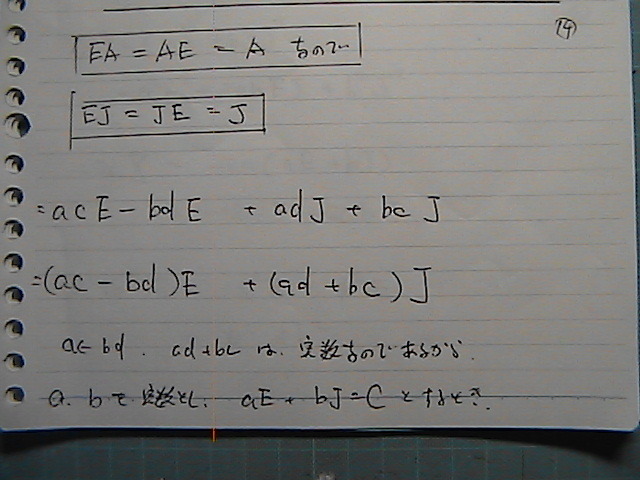 ⑭
EA = AE = A なので
EJ = JE = J
= ac E - bd E + ad J + bc J
= (ac - bd)E + (ad + bc) J
ac - bd . ad+bc は. 実数なのであるから.
a. b を 実数とし. aE + bJ = C とするとき.